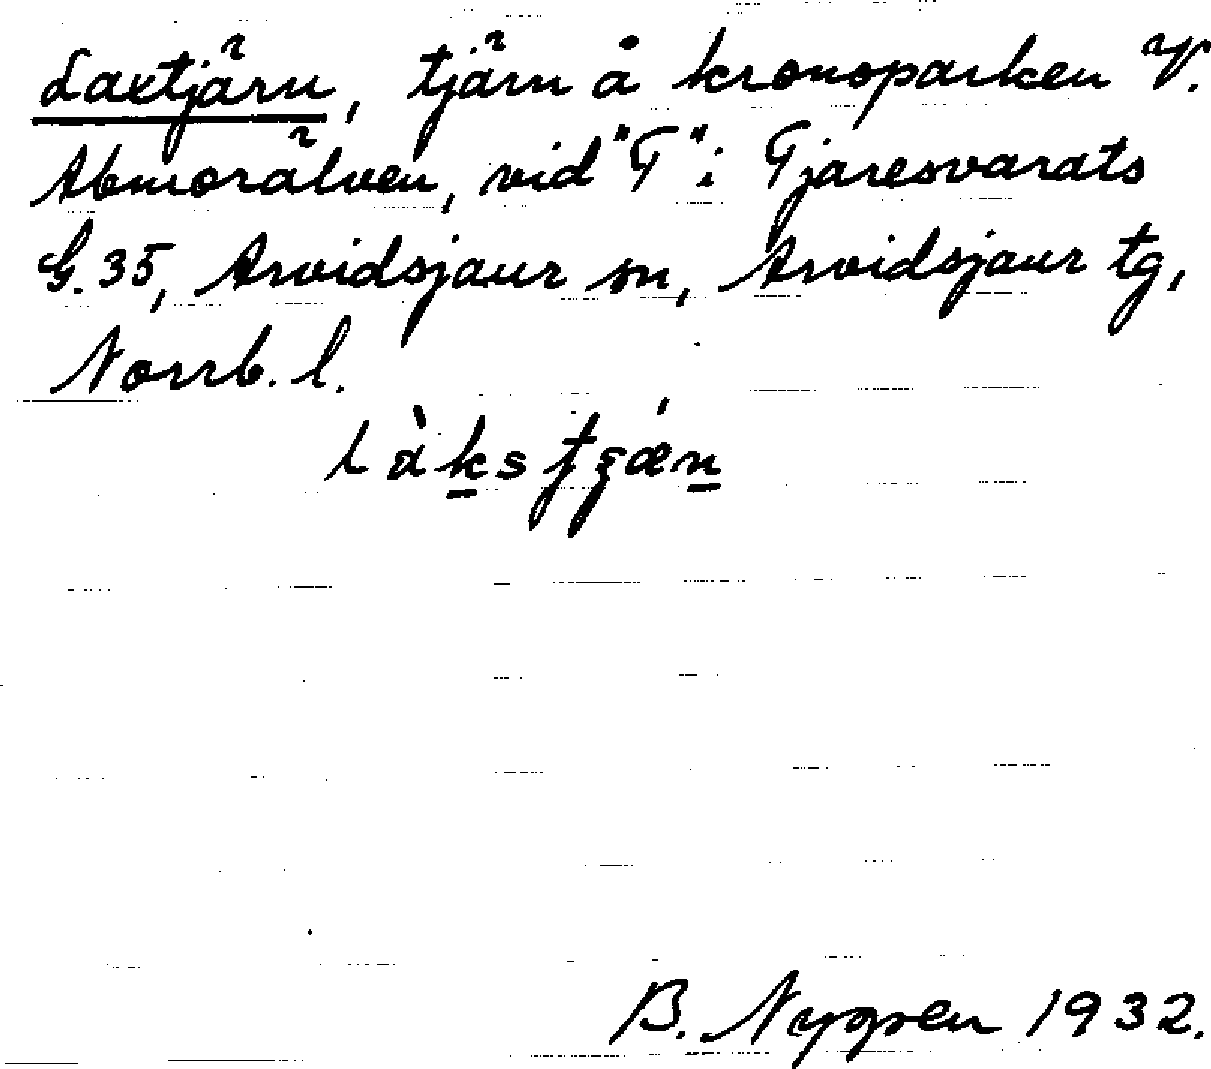 Laxtjärn, tjärn å kronoparken V.
Abmorälven, vid "T" i Tjaresvarats
G.35, Arvidsjaur sn, Arvidsjaur tg,
Norrb. l.
B. Nygren 1932.